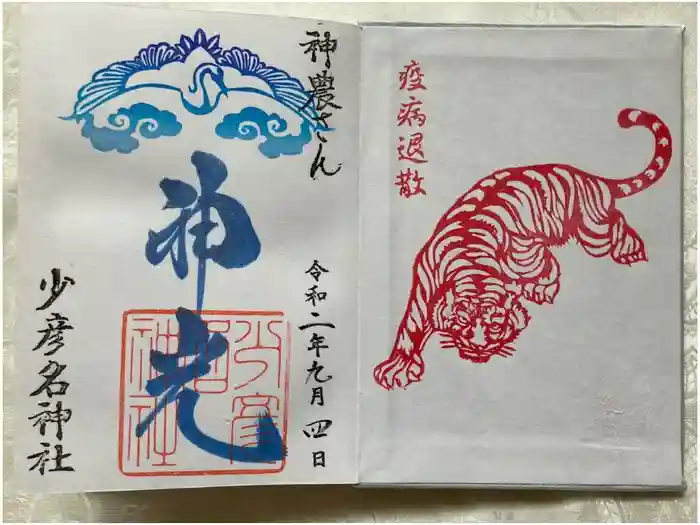 疫病退散
神農さん
神光
令和二年九月四日
少彦名神社
少彦名神社